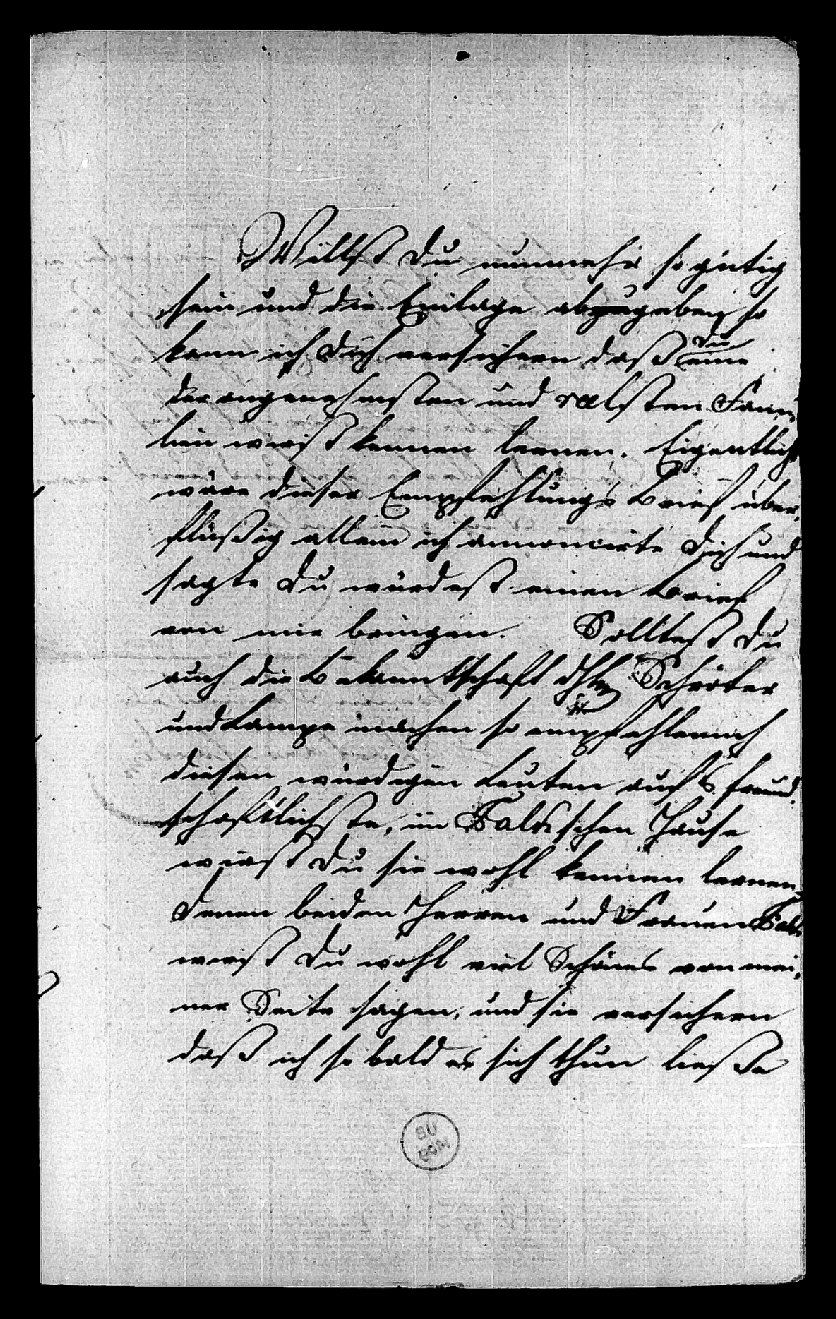 Willst du nunmehr so gütig
sein und die Einlage abzugeben so
kann ich dich versichern daß du eine
der angenehmsten und Fami-
lien wirst kennen lernen. Eigentlich
wäre dieser Empfehlungs Brief über-
flüßig allein ich annoncirte dich und
sagte du würdest einen Brief
von mir bringen. Solltest du
auch die Bekanntschaft Schröter
und Lampe machen so empfehle mich
diesen würdigen Leuten aufs freund-
schaftlichste, im schen Hause
wirst du sie wohl kennen lernen,
Denen beiden Herren und Frauen
wirst du wohl viel Schönes von mei-
ner Seite sagen, und sie versichern
daß ich so bald es sich thun ließe